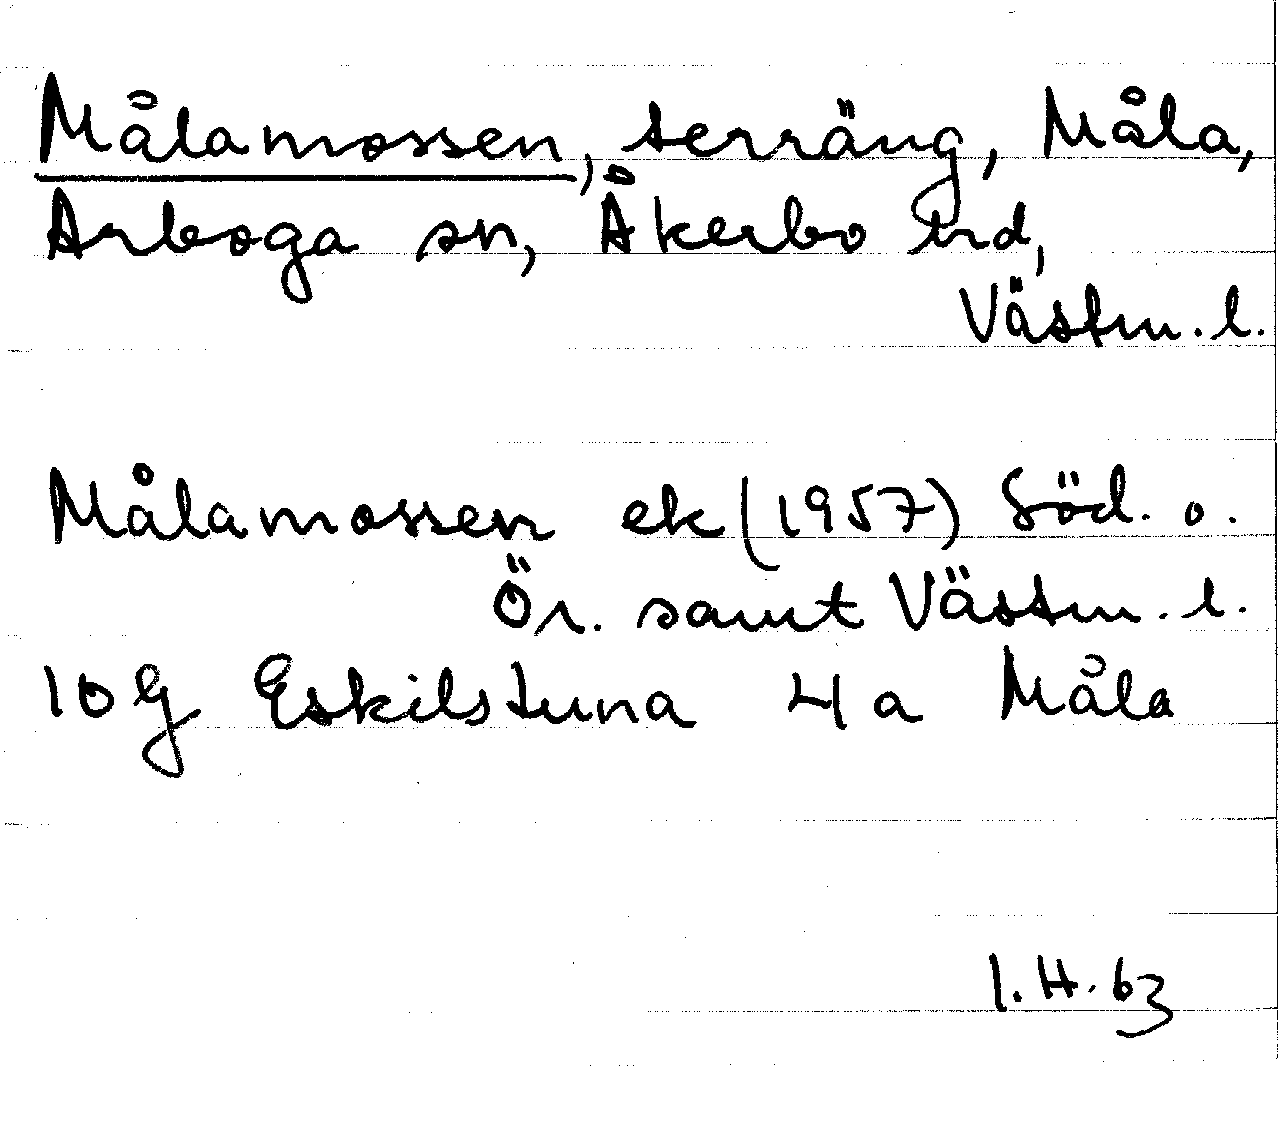 Målamossen, terräng, Måla,
Arboga sn, Åkerbo hrd,
Västm. l.
Målamossen ek (1957) Söd. o.
Ör. samt Västm. l.
10G Eskilstuna 4a Måla
I. H. 63